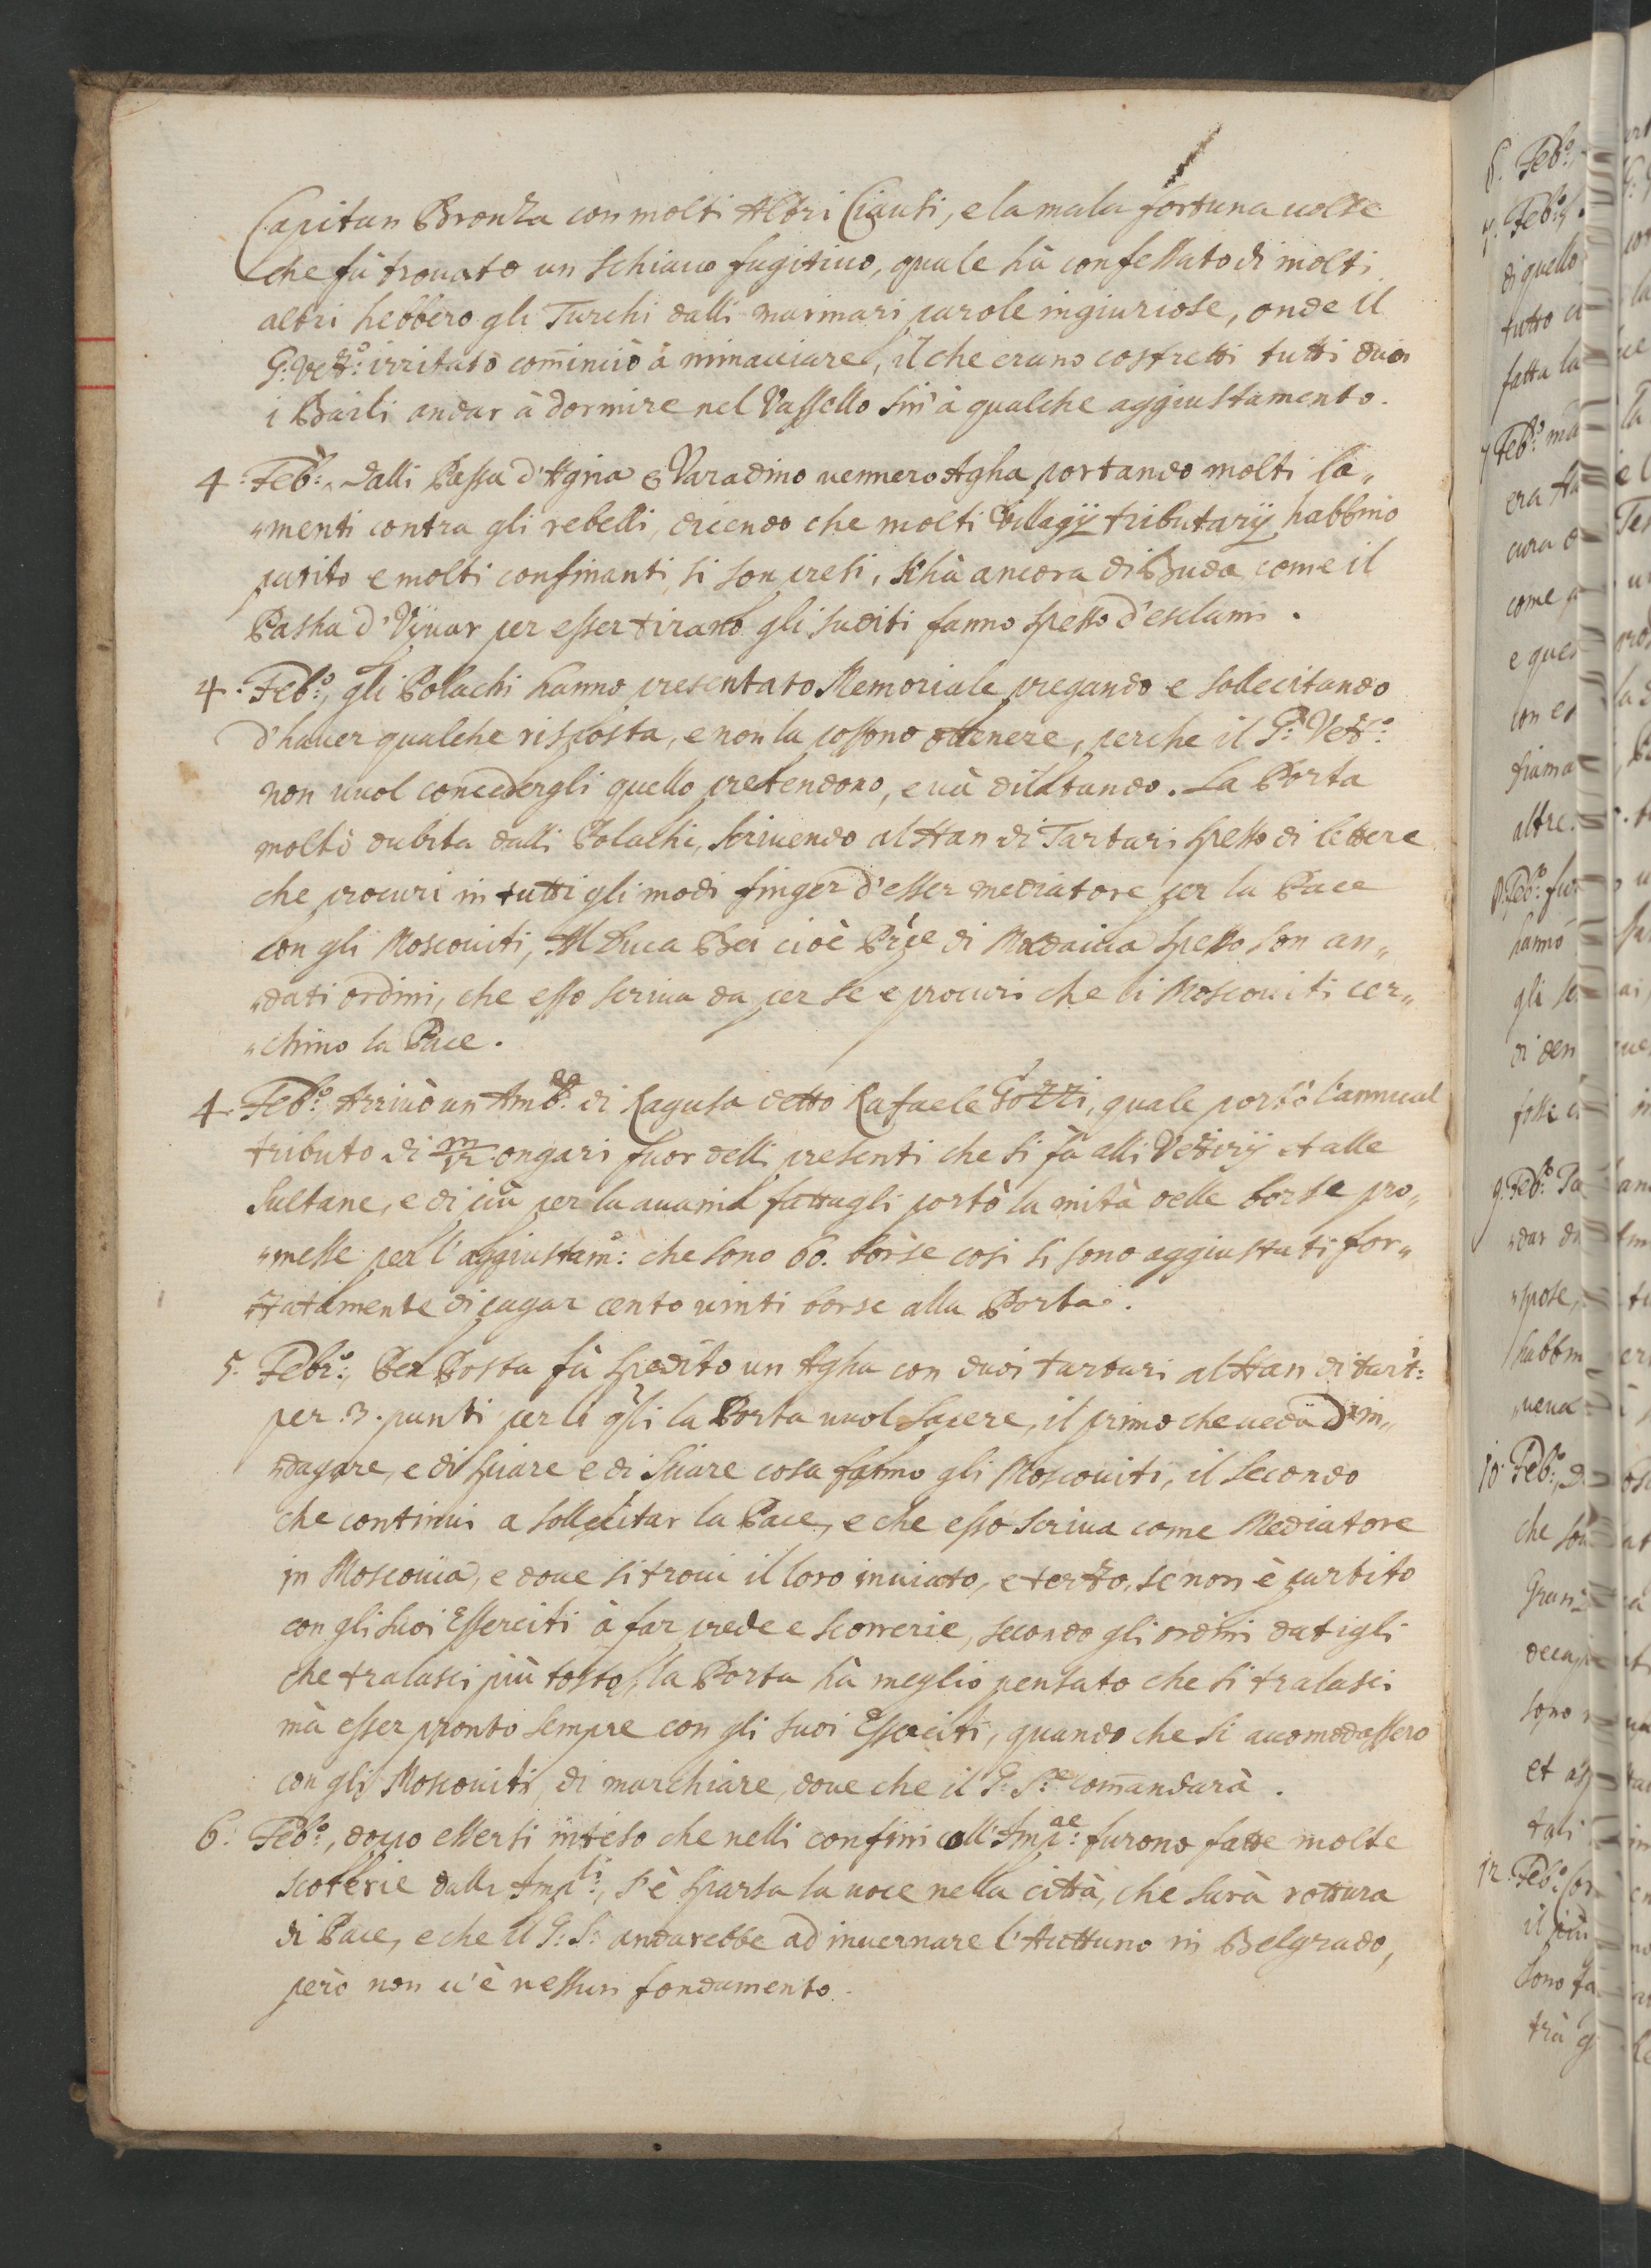 Capitan Bronza con molti Altri Ciausi, e la mala fortuna uolse
che fù trouato un schiauo fugitiuo, quale hà confessato di molti
altri hebbero gli Turchi dalli marinari parole ingiuriose, onde il
G: Vett:º irritato com̃inciò à minacciare, il che erano costretti tutti duoi
i Baili andar à dormire nel Vassello sin' à qualche aggiustamento.
4. Feb:º, dalli Bassa d'Agria e Varadino uennero Agha portando molti la„
„menti contra gli rebelli, dicendo che molti Villagij tributarij habbino
patito e molti confinanti si son presi, s'hà ancora di Buda come il
Basha d'Vjuar per esser tirano gli suditi fanno spesso d'esclami.
4. Feb:º, gli Polachi hanno presentato Memoriale pregando e sollecitando
d'hauer qualche risposta, e non la possono ottenere, perche il G: Vett:º
non uuol concedergli quello pretendono, e uà dilatando. La Porta
molto dubita dalli Polachi, scriuendo al Han di Tartari spesso di lettere
che procuri in tutti gli modi finger d'esser mediatore per la Pace
con gli Moscouiti, Al Duca Bei cioè Prĩpe di Moldauia spesso son an„
„dati ordini, che esso scriua da per se e procuri che li Moscouiti cer„
„chino la Pace.
4. Feb:º Arriuò un Amb:re di Ragusa detto Rafaele Gozzi, quale portò l'annual
tributo di m/12 ongari fuor delli presenti che si fà alli Vezirij et alle
Sultane, e di più per la auania fattagli portò la mità delle borse pro„
„messe per l'aggiustam:º che sono 60. borse cosi si sono aggiustati for„
„zatamente di pagar cento uinti borse alla Porta.
5. Febr:º, Per Posta fù spedito un Agha con duoi tartari al Han di tart:i
per .3. punti per li q̃li la Porta uuol sapere, il primo che ueda d'in„
„dagare, e di spiare e di spiare cosa fanno gli Moscouiti, il secondo
che continui a sollecitar la Pace, e che esso scriua come Mediatore
in Moscouia, e doue si troui il loro inuiato, e terzo, se non è partito
con gli suoi Esserciti à far prede e scorrerie, secondo gli ordini datigli
che tralasci più tosto, la Porta hà meglio pensato che si tralasci
mà esser pronto sempre con gli suoi Esserciti, quando che si acomodassero
con gli Moscouiti, di marchiare, doue che il G: S:re com̃andarà.
6. Feb:º, dopo essersi inteso che nelli confini coll' Imp:ae furono fatte molte
scorrerie dalli Imp:li, s'è sparsa la uoce nella città, che sarà rottura
di Pace, e che il G: S: andarebbe ad inuernare l'Auttuno in Belgrado,
però non u'è nessun fondamento.